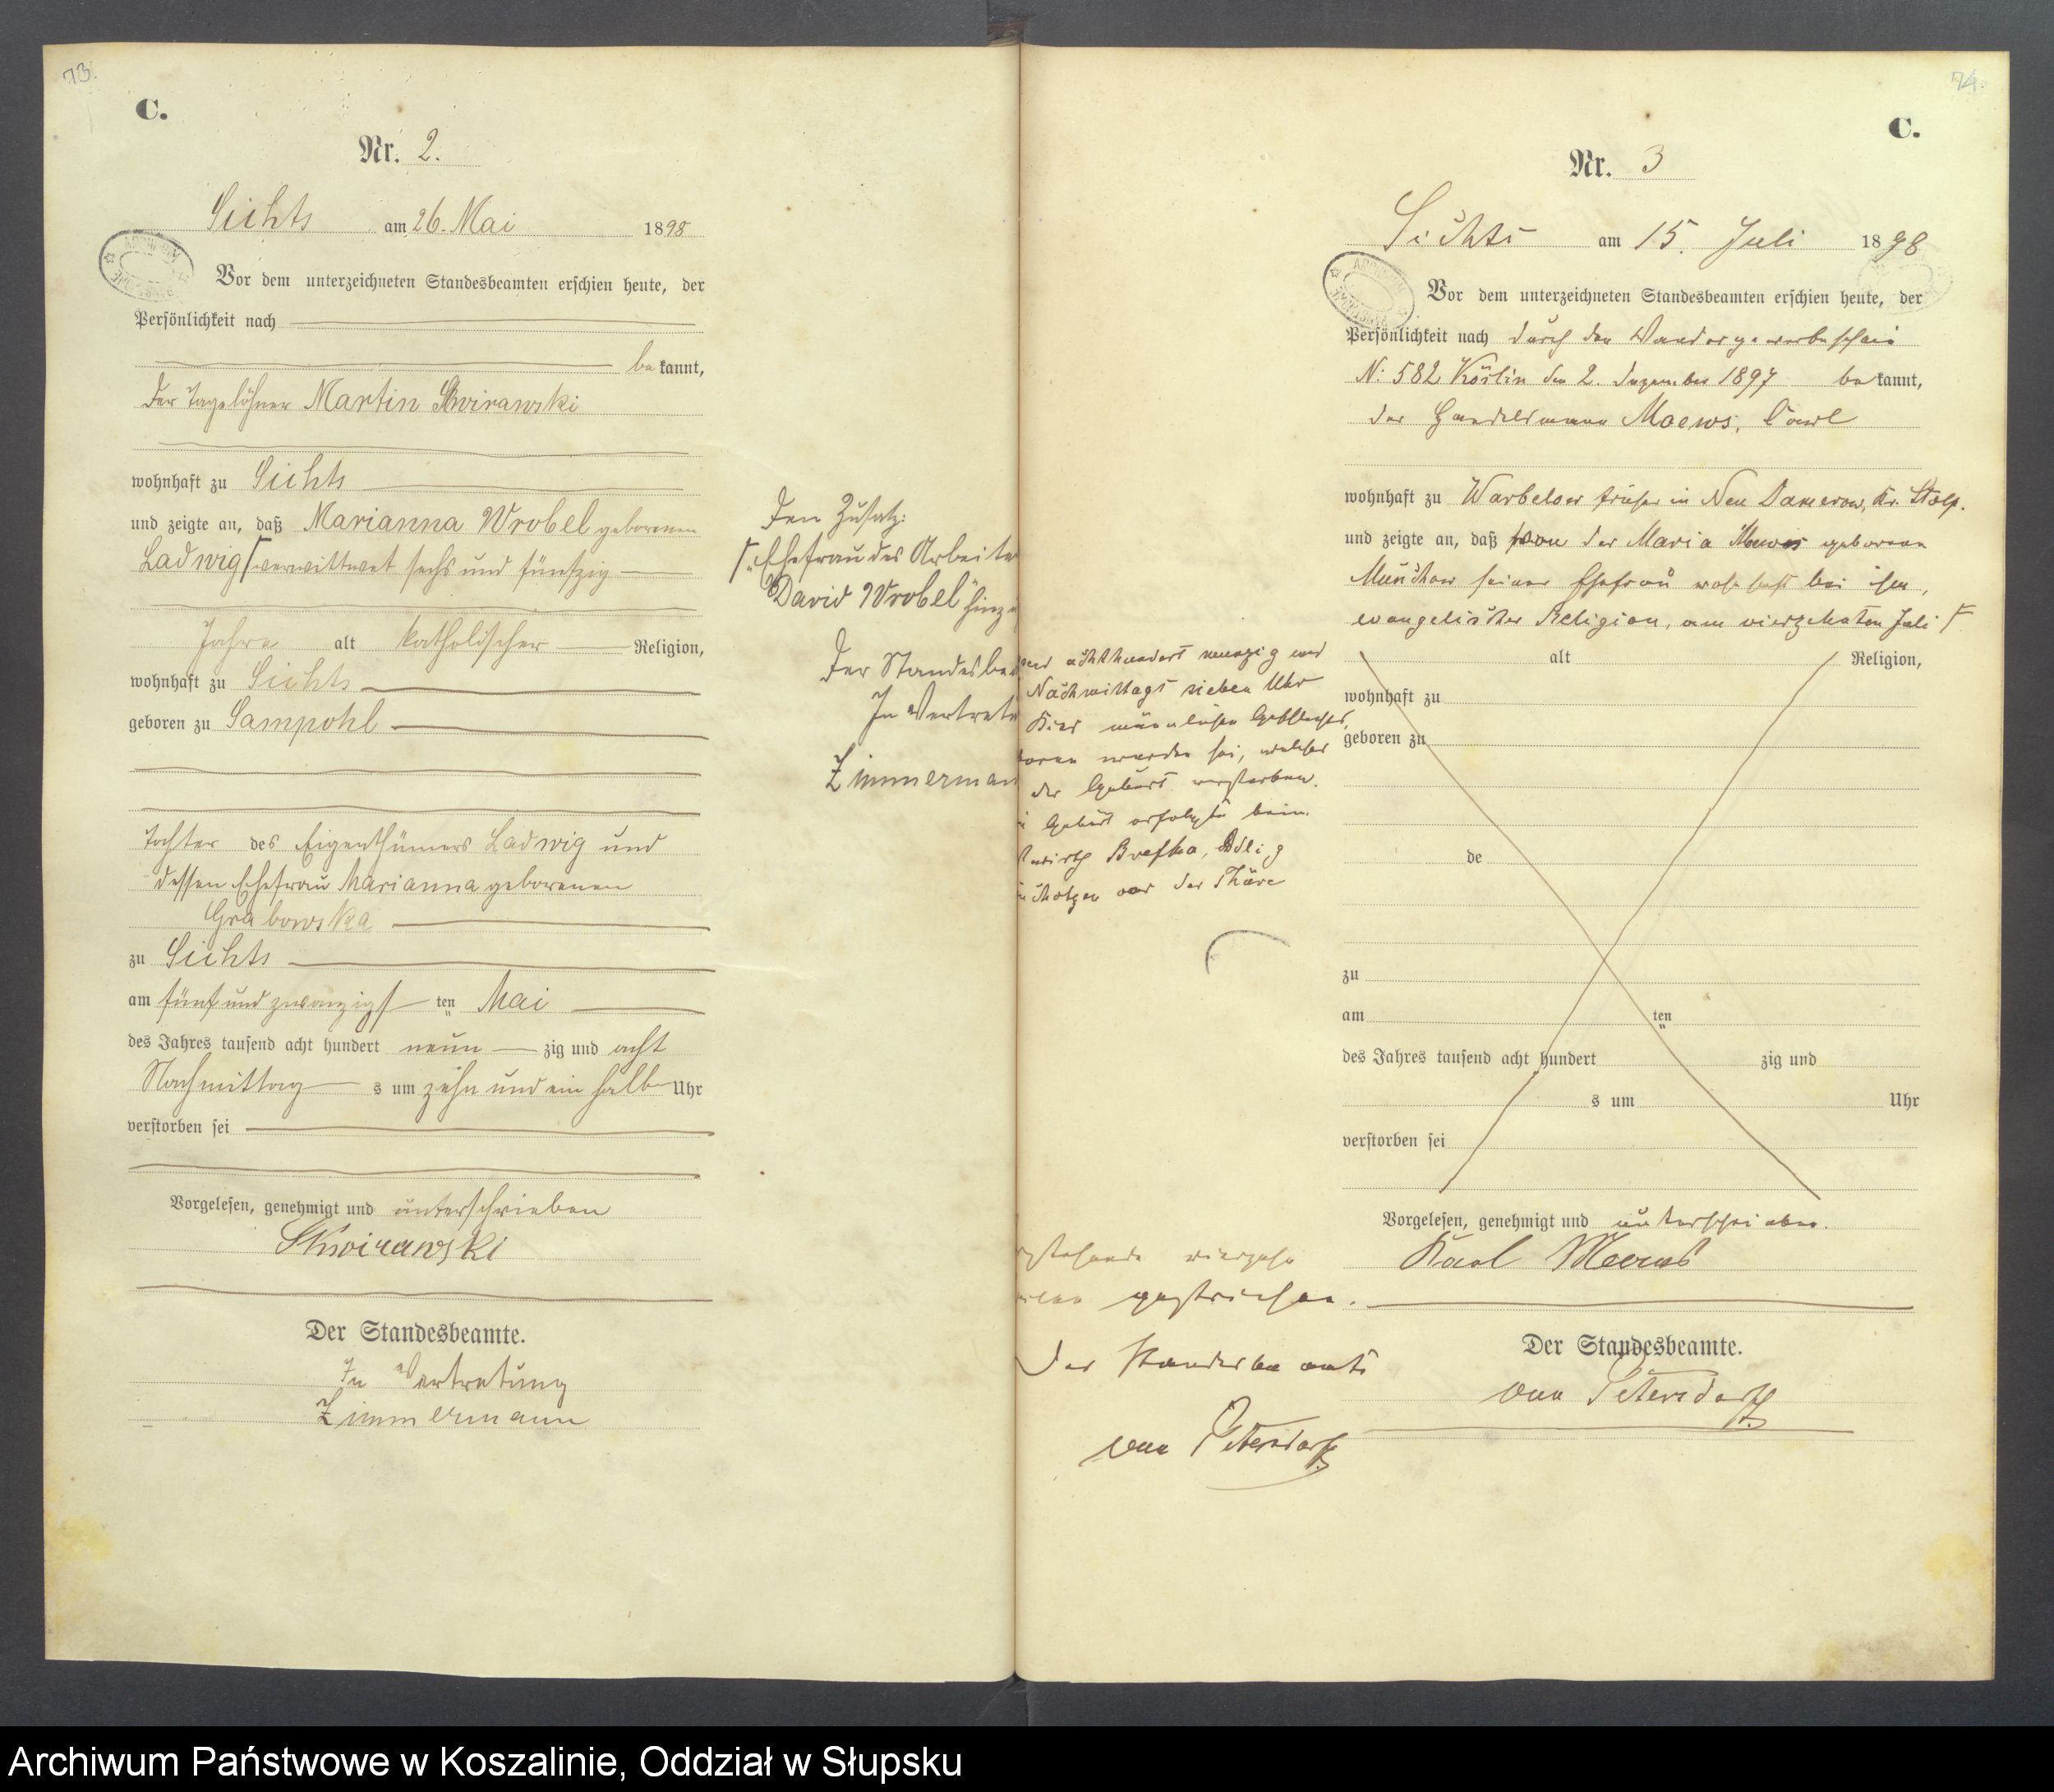 73.
C.
Nr. 2.
Sichts am 26. Mai 1898
Vor dem unterzeichneten Standesbeamten erschien heute, der
Persönlichkeit nach
bekannt,
der Tagelöhner Martin Skwirawski
wohnhaft zu Sichts
und zeigte an, daß Marianna Wrobel geborenen
Ladwig verwittwet sechs und fünfzig
Jahre alt katholischer Religion,
wohnhaft zu Sichts
geboren zu Sampohl
Tochter des Eigenthümers Ladwig und
dessen Ehefrau Marianna geborenen
Grabowska
zu Sichts
am fünf und zwanzigsten Mai
des Jahres tausend acht hundert neunzig und acht
Nachmittags um zehn und ein halb Uhr
verstorben sei
Vorgelesen, genehmigt und unterschrieben
Skwirawski
Der Standesbeamte.
In Vertretung
Zimmermann
Den Zusatz:
"Ehefrau des Arbeite
David Wrobel" hinz
Der Standesbea
In Vertretu
Zimmerman
74.
C.
Nr. 3
Sichts am 15. Juli 1898
Vor dem unterzeichneten Standesbeamten erschien heute, der
Persönlichkeit nach durch den Wandergewerbeschein
N: 582 Köslin den 2. Dezember 1897 bekannt,
der Handelsmann Maews, Carl
wohnhaft zu Warbelow früher in Neu Damerow, Kr. Stolp.
und zeigte an, daß von der Maria Maews geborene
Münchow seiner Ehefrau wohnhaft bei ihm,
evangelischer Religion, am vierzehnten Juli
alt Religion,
wohnhaft zu
geboren zu
de
zu
am ten
des Jahres tausend acht hundert zig und
s um Uhr
verstorben sei
Vorgelesen, genehmigt und unterschrieben.
Karl Meews
Der Standesbeamte.
von Petersdorff
achthundert neunzig und
Nachmittags sieben Uhr
Kind männlichen Geschlechts,
boren worden sei, welches
der Geburt verstorben.
Geburt erfolgte beim
twirth Brefka, Adlig
vor der Thüre
rstehende vierzehn
gestrichen.
Der Standesbeamte
von Petersdorff
Archiwum Państwowe w Koszalinie, Oddział w Słupsku